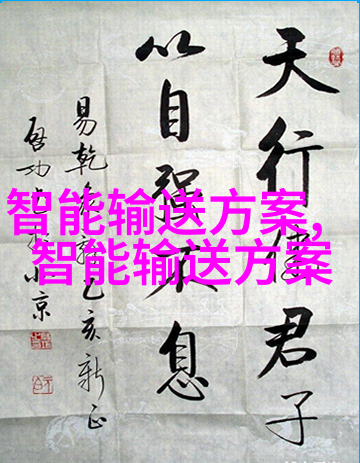 智能输送方案,
智能输送方案
天行健君子
以自强不息
易乾乙亥新正
启功京